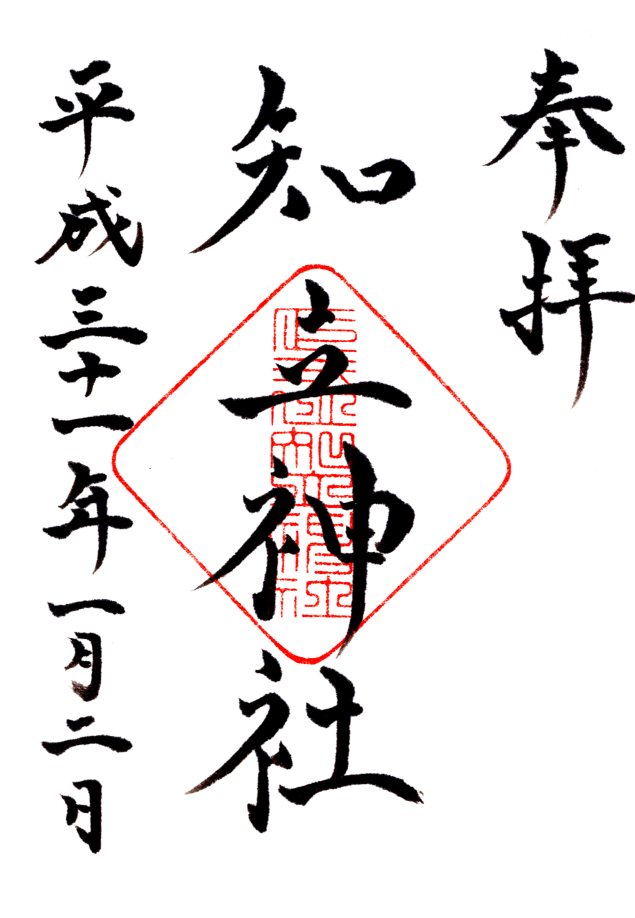 奉拝
知立神社
平成三十一年一月二日